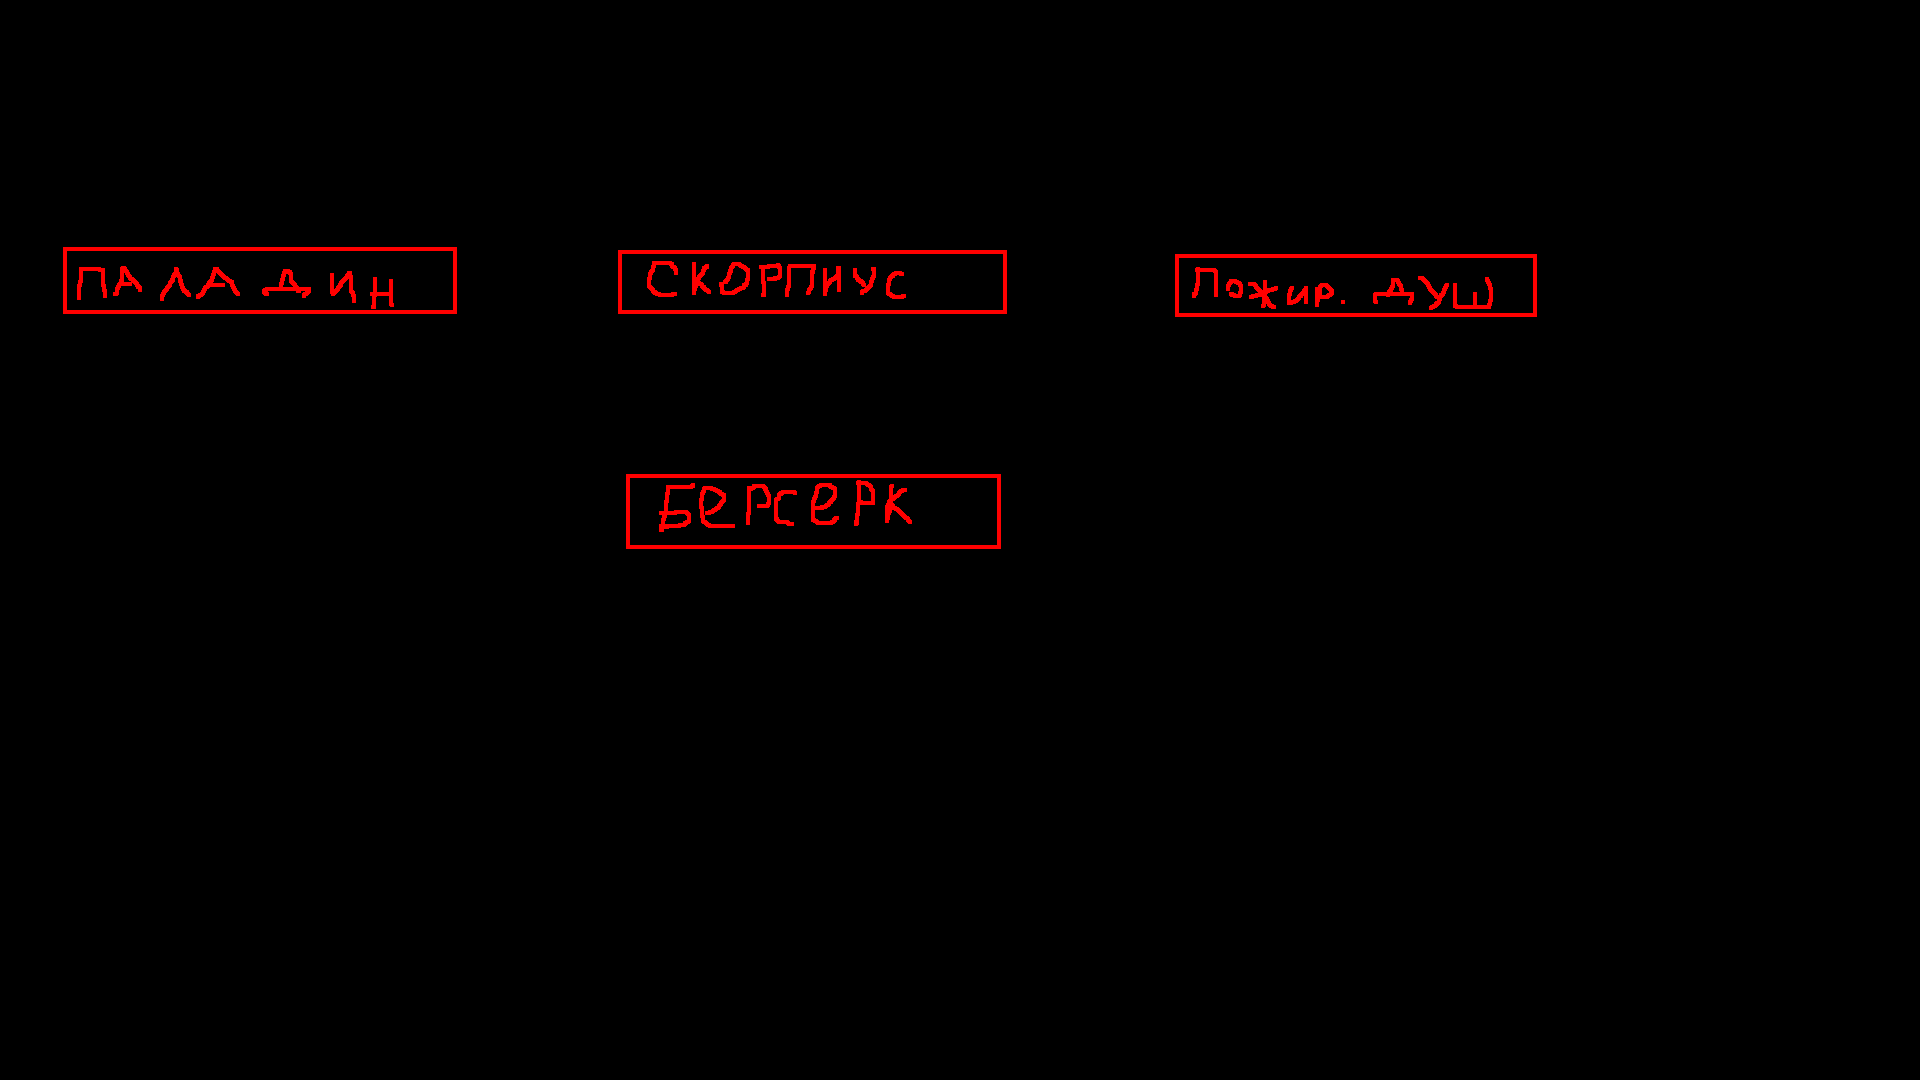 ПАЛАДИН
СКОРПИУС
Пожир. ДУШ
БЕРСЕРК